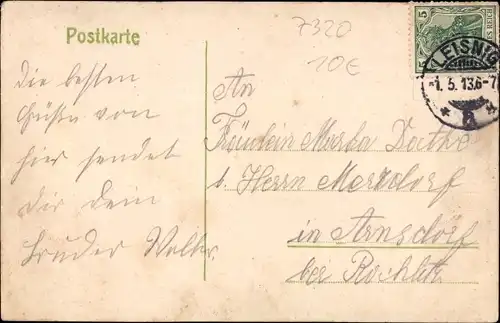 7320
Postkarte
10€
5
LEISNIG
1.5.13.6-7
* a *
Die besten
Grüße von
hier sendet
Dir Dein
Bruder
An
Fräulein Martha
b. Herrn
in Arnsdorf
bei Rochlitz